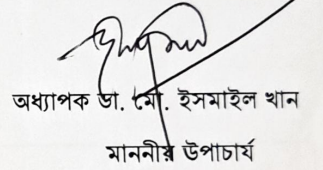 অধ্যাপক ডা. মো. ইসমাইল খান
মাননীয় উপাচার্য